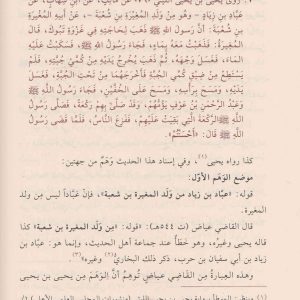 عَبَّادِ بْنِ زِيَادٍ – وَهُوَ مِنْ وَلَدِ الْمُغِيرَةِ بْنِ شُعْبَةَ –، عَنْ أَبِيهِ الْمُغِيرَةِ بْنِ
شُعْبَةَ: أَنَّ رَسُولَ اللهِ ﷺ ذَهَبَ لِحَاجَتِهِ فِي غَزْوَةِ تَبُوكَ، قَالَ
الْمُغِيرَةُ: فَذَهَبْتُ مَعَهُ بِمَاءٍ، فَجَاءَ رَسُولُ اللهِ ﷺ، فَسَكَبْتُ عَلَيْهِ
الْمَاءَ، فَغَسَلَ وَجْهَهُ، ثُمَّ ذَهَبَ يُخْرِجُ يَدَيْهِ مِنْ كُمَّيْ جُبَّتِهِ، فَلَمْ
يَسْتَطِعْ مِنْ ضِيقِ كُمَّيِ الْجُبَّةِ فَأَخْرَجَهُمَا مِنْ تَحْتِ الْجُبَّةِ، فَغَسَلَ
يَدَيْهِ، وَمَسَحَ بِرَأْسِهِ، وَمَسَحَ عَلَى الْخُفَّيْنِ، فَجَاءَ رَسُولُ اللهِ ﷺ
وَعَبْدُ الرَّحْمَنِ بْنُ عَوْفٍ يَؤُمُّهُمْ، وَقَدْ صَلَّى بِهِمْ رَكْعَةً، فَصَلَّى رَسُولُ
اللهِ ﷺ الرَّكْعَةَ الَّتِي بَقِيَتْ عَلَيْهِمْ، فَفَزِعَ النَّاسُ، فَلَمَّا قَضَى رَسُولُ
اللهِ ﷺ قَالَ: «أَحْسَنْتُمْ».
كذا رواه يحيى(١)، وفي إسناد هذا الحديث وَهَمٌ من جهتين:
موضع الوَهَم الأوّل:
قوله: «عبّاد بن زياد من وَلَد المغيرة بن شعبة»، فإنّ عَبَّاداً ليس مِن ولد
المغيرة.
قال القاضي عياض (ت ٥٤٤هـ): «قوله: «مِن وَلَد المغيرة بن شعبة»،
قاله يحيى وغيرُه، وهو خطأ عند جماعة أهل الحديث، وإنما هو: عبّاد بن
زياد بن أبي سفيان بن حرب، ذكر ذلك البخاري(٢) وغيره»(٣)
وهذه العبارة مِن القاضي عياض تُوهِمُ أنّ الوَهَم مِن يحيى بن يحيى